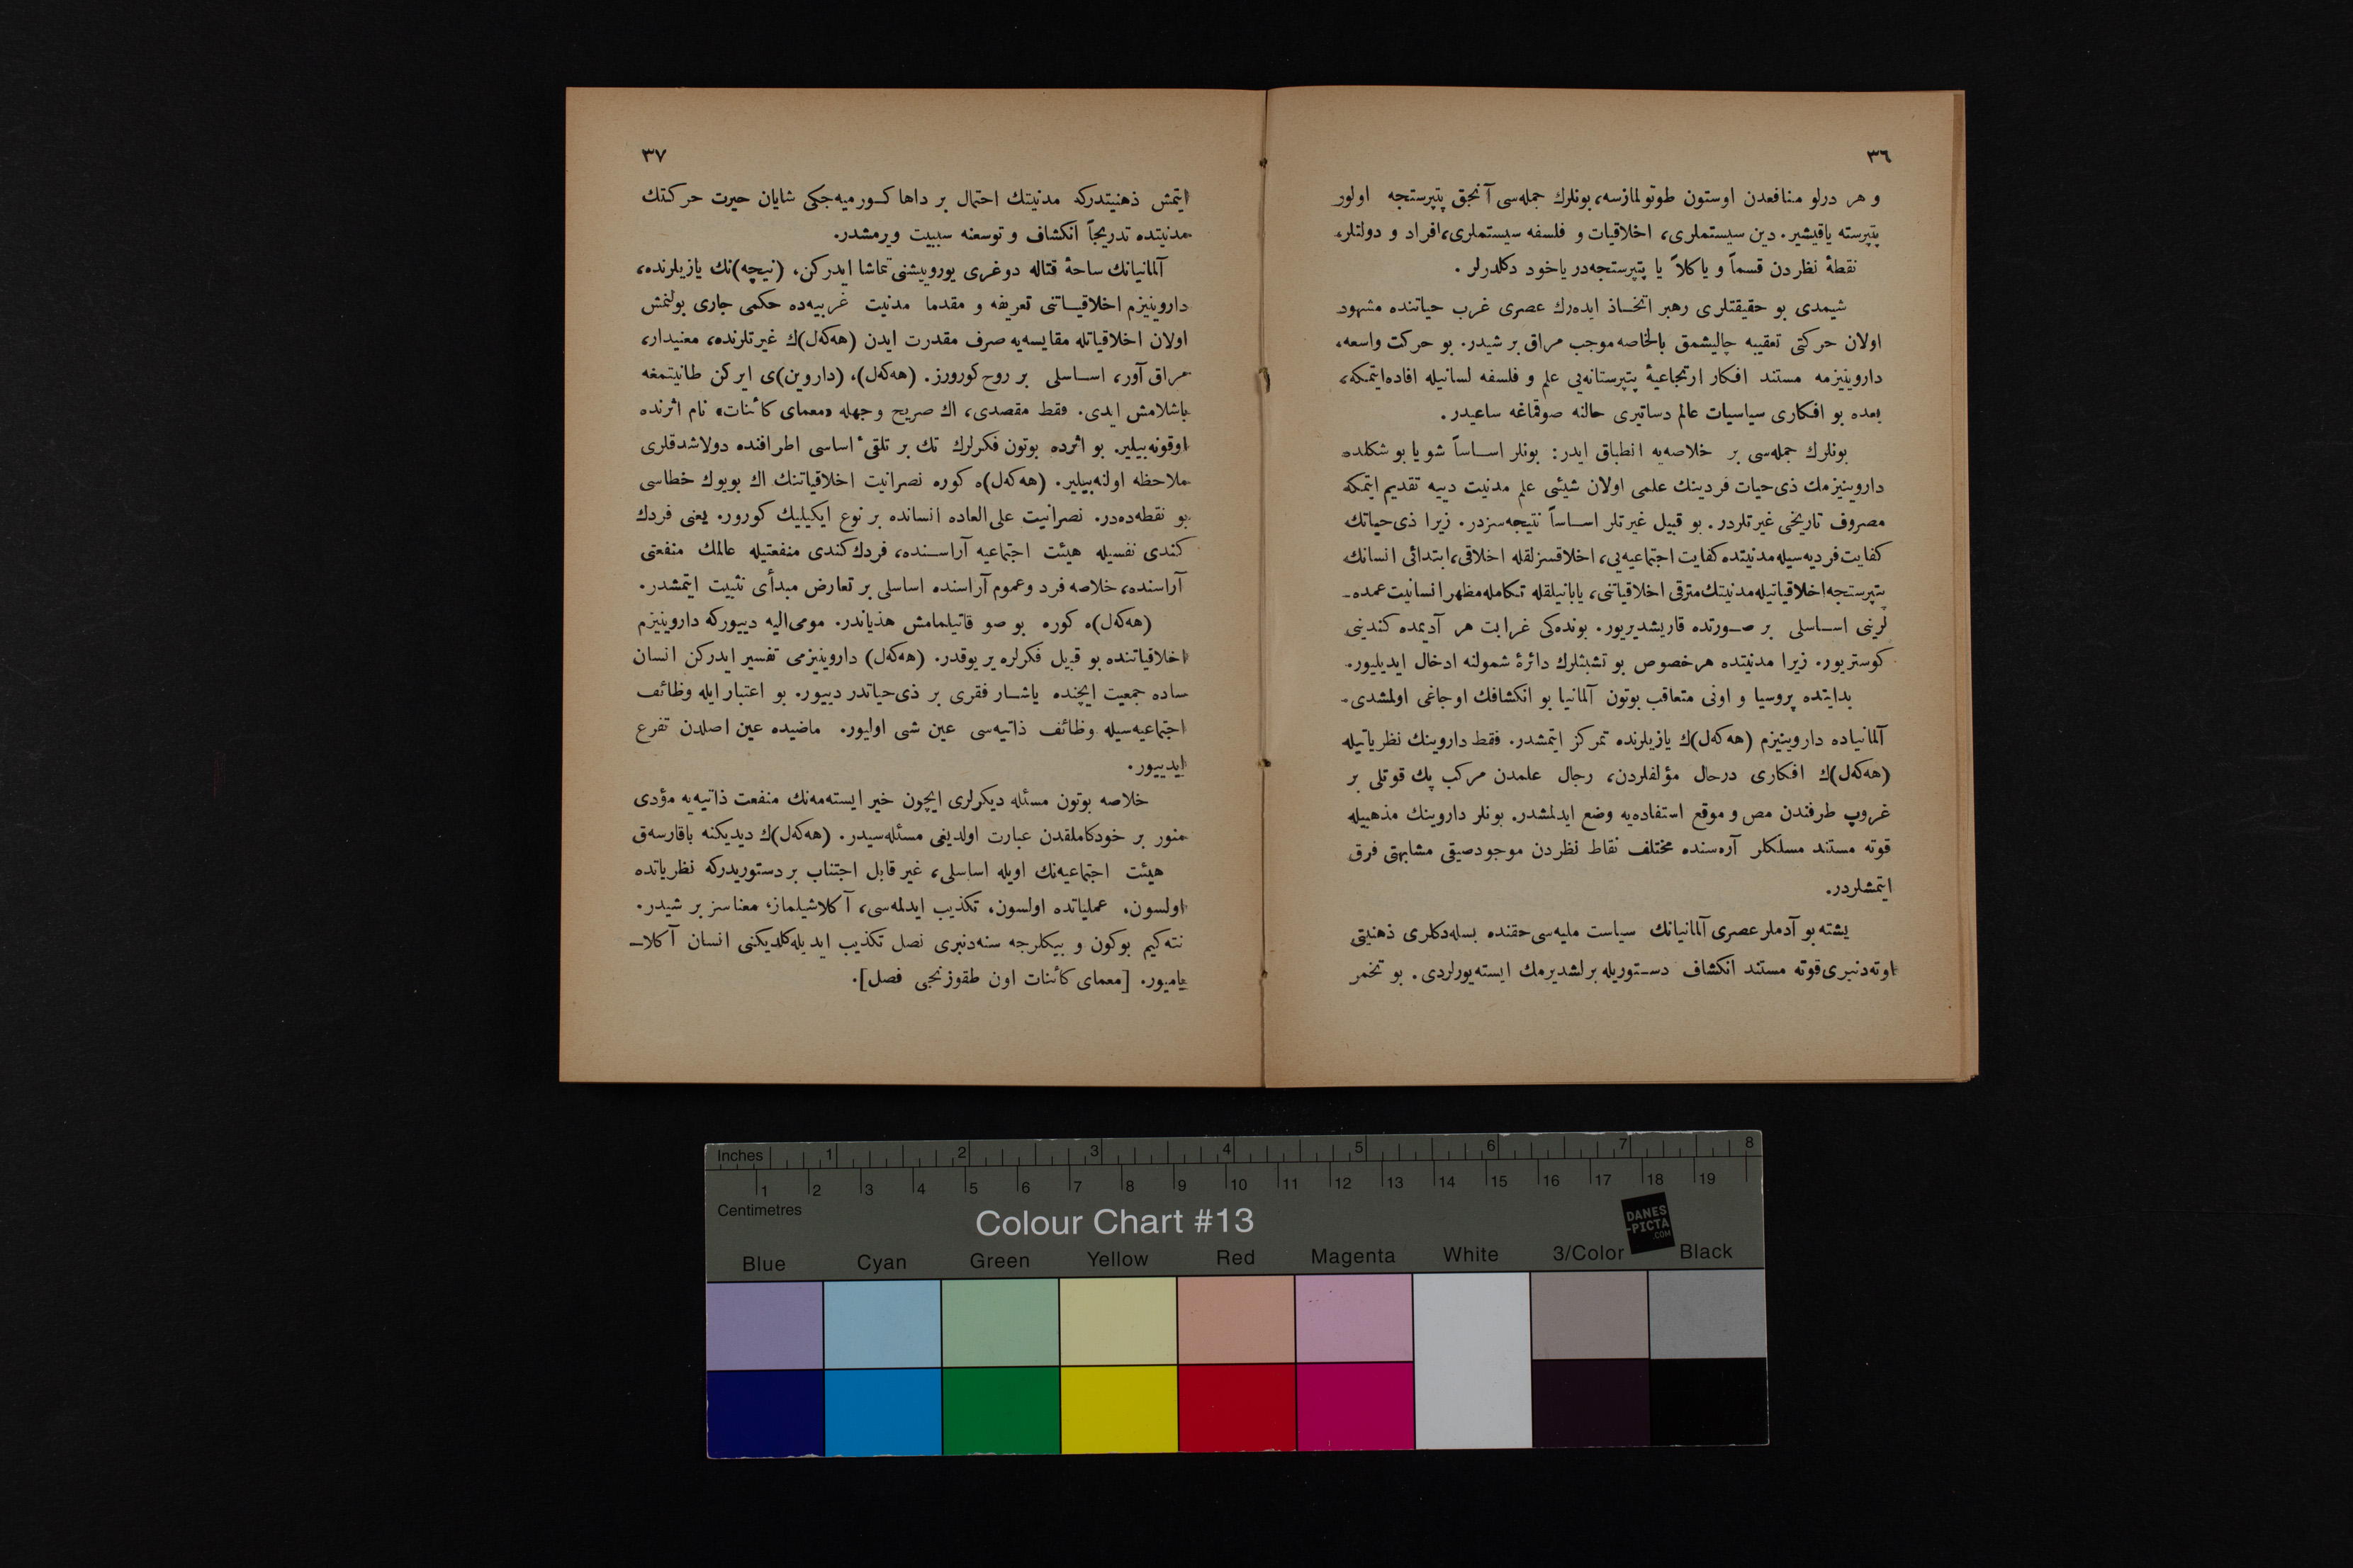 ٣٦
و هر درلو منافعدن اوستون طوتولمازسه، بونلرك جمله‌سی آنجق پتپرستجه اولور
پتپرسته یاقیشیر. دین سیستملری، اخلاقیات و فلسفه سیستملری، افراد و دولتلر،
نقطهٔ نظردن قسماً و یا كلاً یا پتپرستجه‌در یاخود دكلدرلر.
شیمدی بو حقیقتلری رهبر اتخاذ ایده‌رك عصری غرب حیاتنده مشهود
اولان حركتی تعقیبه چالیشمق بالخاصه موجب مراق بر شیدر. بو حركت واسعه،
داروینیزمه مستند افكار ارتجاعیهٔ پتپرستانه‌یی علم و فلسفه لسانیله افاده‌ایتمكه،
بعده بو افكاری سیاسیات عالم دساتیری حالنه صوقماغه ساعیدر.
بونلرك جمله‌سی بر خلاصه‌یه انطباق ایدر: بونلر اساساً شو یا بو شكلده
داروینیزمك ذی‌حیات فردینك علمی اولان شیئی علم مدنیت دییه تقدیم ایتمكه
مصروف تاریخی غیرتلردر. بو قبیل غیرتلر اساساً نتیجه‌سزدر. زیرا ذی‌حیاتك
كفایت فردیه‌سیله مدنیتده كفایت اجتماعیه‌یی، اخلاقسزلقله اخلاقی، ابتدائی انسانك
پتپرستجه اخلاقیاتیله مدنیتك مترقی اخلاقیاتنی، یابانیلقله تكامله مظهر انسانیت عمده‌ـ
لرینی اساسلی بر صورتده قاریشدیریور. بونده‌كی غرابت هر آدیمده كندینی
كوستریور. زیرا مدنیتده هر خصوص بو تشبثلرك دائرهٔ شمولنه ادخال ایدیلیور.
بدایتده پروسیا و اونی متعاقب بوتون آلمانیا بو انكشافك اوجاغی اولمشدی.
آلمانیاده داروینیزم (هه‌كه‌ل)ك یازیلرنده تمركز ایتمشدر. فقط داروینك نظریاتیله
(هه‌كه‌ل)ك افكاری درحال مؤلفلردن، رجال علمدن مركب پك قوتلی بر
غروپ طرفندن مص و موقع استفاده‌یه وضع ایدلمشدر. بونلر داروینك مذهبیله
قوته مستند مسلكلر آره‌سنده مختلف نقاط نظردن موجود صیقی مشابهتی فرق
ایتمشلردر.
یشته بو آدملر عصری آلمانیانك سیاست ملیه‌سی حقنده بسله‌دكلری ذهنیتی
اوته‌دنبری قوته مستند انكشاف دستوریله برلشدیرمك ایسته‌یورلردی. بو تخمر
٣٧
ایتمش ذهنیتدركه مدنیتك احتمال بر داها كورمیه‌جكی شایان حیرت حركتك
مدنیتده تدریجاً انكشاف و توسعنه سببیت ویرمشدر.
آلمانیانك ساحهٔ قتاله دوغری یورویشنی تماشا ایدركن، (نیچه)نك یازیلرنده،
داروینیزم اخلاقیاتنی تعریفه و مقدما مدنیت غربیه‌ده حكمی جاری بولنمش
اولان اخلاقیاتله مقایسه‌یه صرف مقدرت ایدن (هه‌كه‌ل)ك غیرتلرنده، معنیدار،
مراق آور، اساسلی بر روح كورورز. (هه‌كه‌ل)، (داروین)ی ایركن طانیتمغه
باشلامش ایدی. فقط مقصدی، اك صریح وجهله «معمای كائنات» نام اثرنده
اوقونه‌بیلیر. بو اثرده بوتون فكرلرك تك بر تلقیٔ اساسی اطرافنده دولاشدقلری
ملاحظه اولنه‌بیلیر. (هه‌كه‌ل)ه كوره نصرانیت اخلاقیاتنك اك بویوك خطاسی
بو نقطه‌ده‌در. نصرانیت علی‌العاده انسانده بر نوع ایكیلیك كورور. یعنی فردك
كندی نفسیله هیئت اجتماعیه آراسنده، فردك كندی منفعتیله عالمك منفعتی
آراسنده، خلاصه فرد و عموم آراسنده اساسلی بر تعارض مبدأی تثبیت ایتمشدر.
(هه‌كه‌ل)ه كوره بو صو قاتیلمامش هذیاندر. مومی‌الیه دییوركه داروینیزم
اخلاقیاتنده بو قبیل فكرلره یر یوقدر. (هه‌كه‌ل) داروینیزمی تفسیر ایدركن انسان
ساده جمعیت ایچنده یاشار فقری بر ذی‌حیاتدر دییور. بو اعتبار ایله وظائف
اجتماعیه‌سیله وظائف ذاتیه‌سی عین شی اولیور. ماضیده عین اصلدن تفرع
ایدییور.
خلاصه بوتون مسئله دیكرلری ایچون خیر ایسته‌مه‌نك منفعت ذاتیه‌یه مؤدی
منور بر خودكاملقدن عبارت اولدیغی مسئله‌سیدر. (هه‌كه‌ل)ك دیدیكنه باقارسه‌ق
هیئت اجتماعیه‌نك اویله اساسلی، غیر قابل اجتناب بر دستوریدركه نظریاتده
اولسون، عملیاتده اولسون، تكذیب ایدلمه‌سی، آكلاشیلماز، معناسز بر شیدر.
نته‌كیم بوكون و بیكلرجه سنه‌دنبری نصل تكذیب ایدیله‌كلدیكنی انسان آكلاـ
یامیور. [معمای كائنات اون طقوزنجی فصل].
Inches 1 2 3 4 5 6 7 8
1 2 3 4 5 6 7 8 9 10 11 12 13 14 15 16 17 18 19
Centimetres
Colour Chart #13
DANES
-PICTA
.COM
Blue Cyan Green Yellow Red Magenta White 3/Color Black